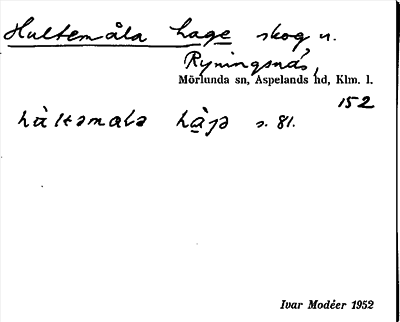 Hultemåla hage skog u.
Ryningsnäs,
Mörlunda sn, Aspelands hd, Klm. l.
152
hàltəmala hàgə s. 81.
Ivar Modéer 1952